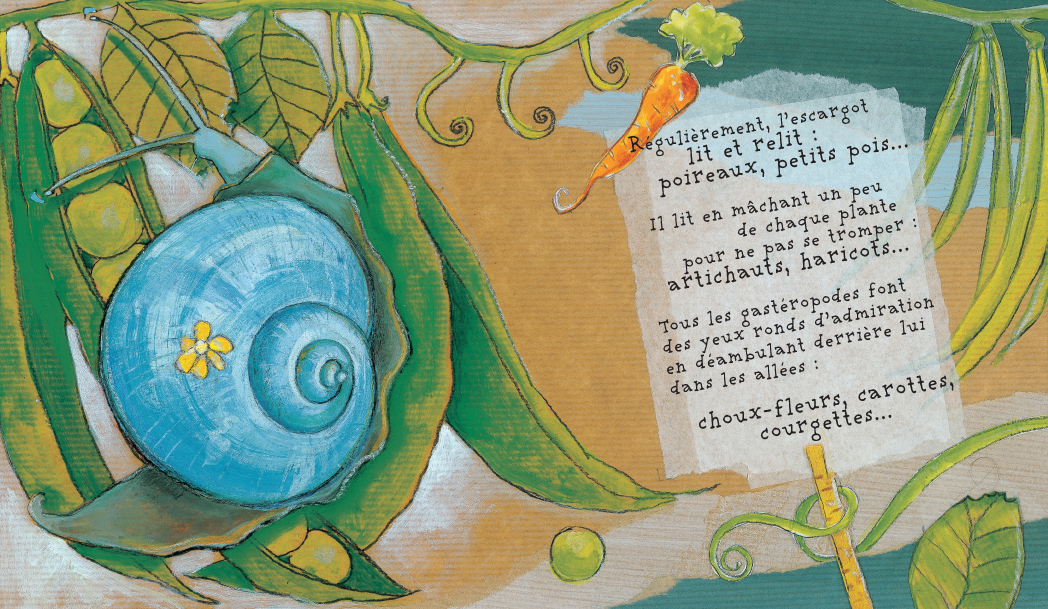 Régulièrement, l'escargot
lit et relit :
poireaux, petits pois...
Il lit en mâchant un peu
de chaque plante
pour ne pas se tromper :
artichauts, haricots...
Tous les gastéropodes font
des yeux ronds d'admiration
en déambulant derrière lui
dans les allées :
choux-fleurs, carottes,
courgettes...